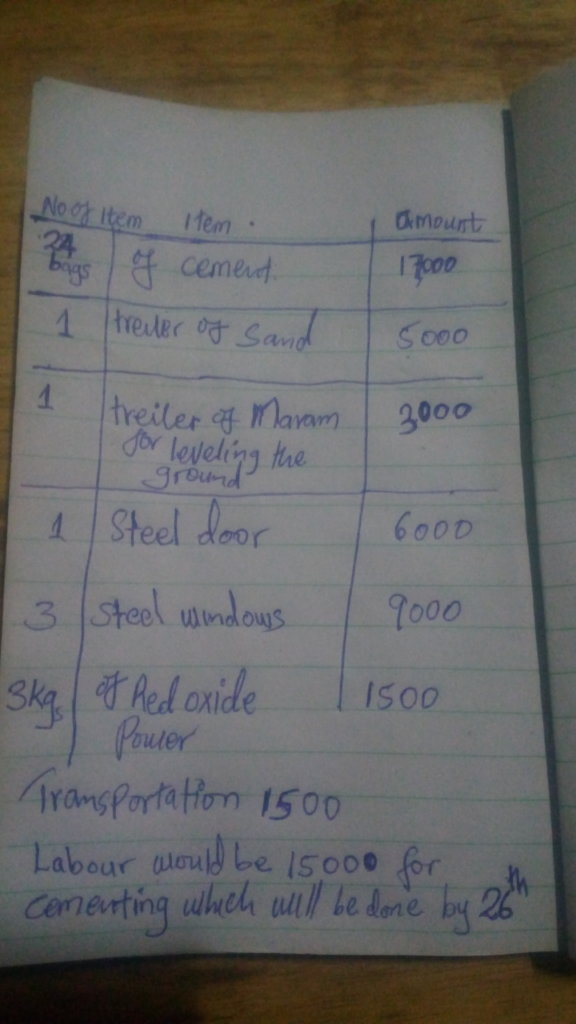 No of Item Item . Amount
24 bags of cement. 17000
1 treiler of Sand 5000
1 treiler of Maram 3000
for leveling the
ground
1 Steel door 6000
3 Steel windows 9000
3kgs of Red oxide 1500
Power
Transportation 1500
Labour would be 15000 for
cementing which will be done by 26th